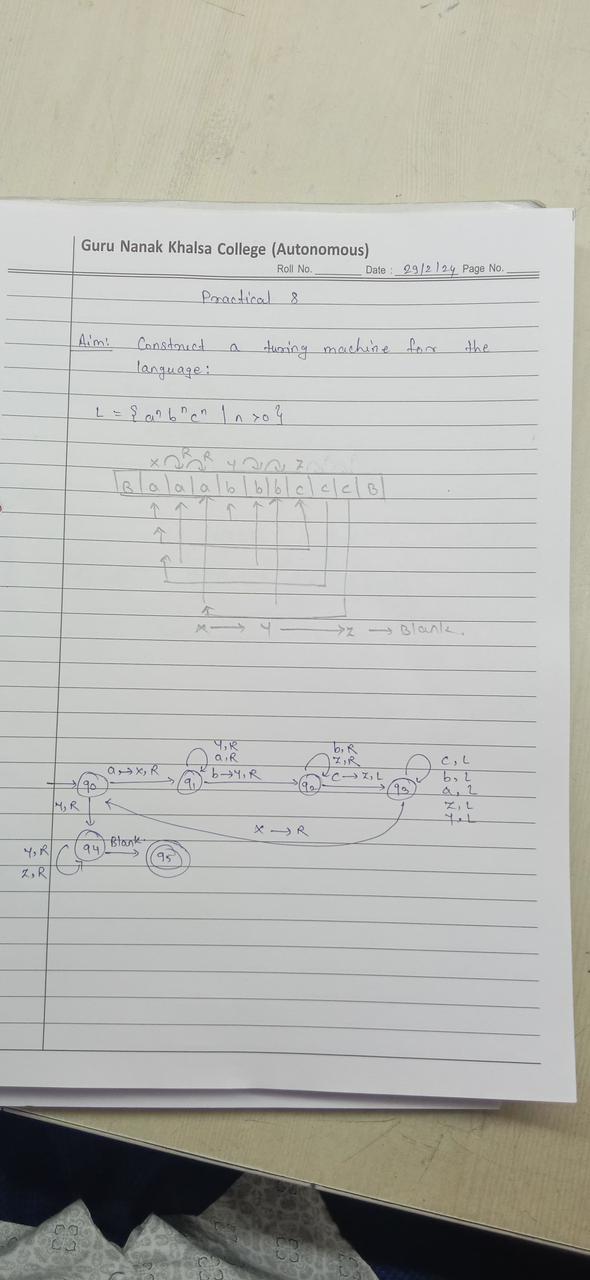 Guru Nanak Khalsa College (Autonomous)
Roll No. Date : 29/2/24 Page No.
Practical 8
Aim: Construct a turing machine for the
language:
L = { aⁿ bⁿ cⁿ | n >0 }
X R R Y Z
B|a|a|a|b|b|b|c|c|c|B
X → Y → Z → Blank.
Y,R
a,R
b,R
z,R
c,L
b,L
a,L
z,L
Y,L
q0 a→x,R q1 b→Y,R q2 c→z,L q3
Y,R
X → R
q4 Blank q5
Y,R
Z,R